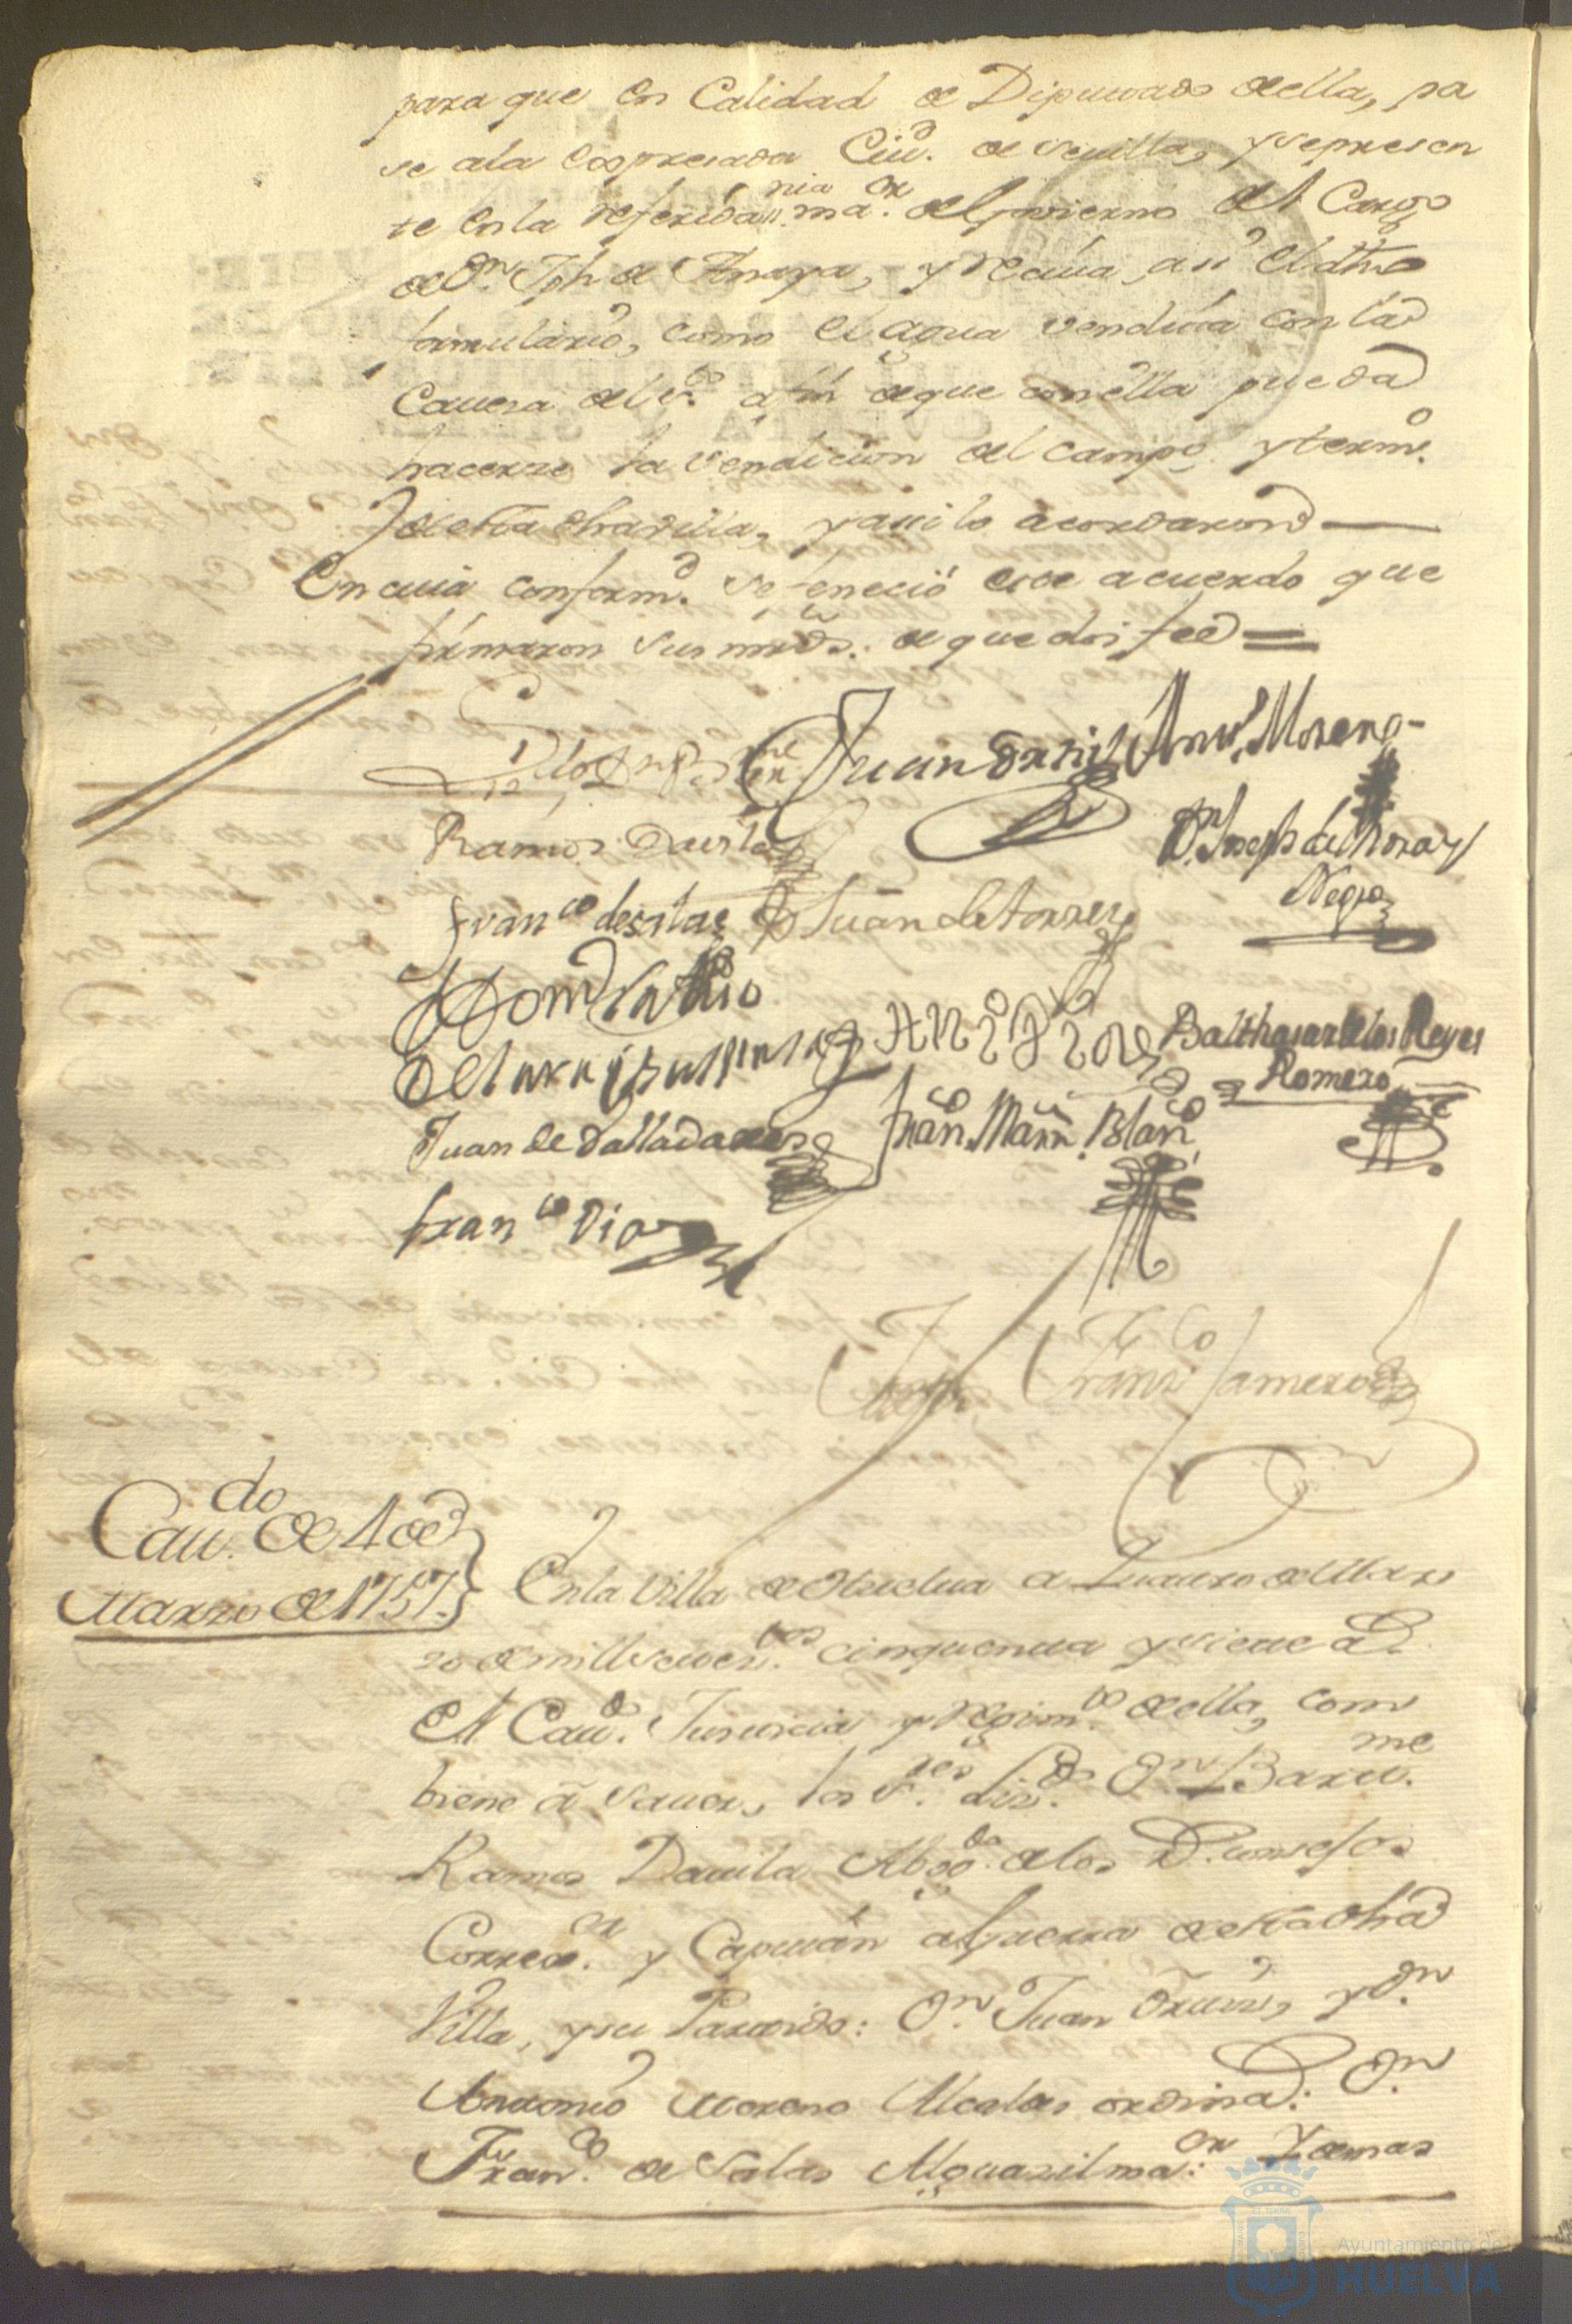 para que en Calidad de Diputado de ella, pa
se ala expresada Ciud. de Sevilla, y represen
te en la referida maior. del govierno del Cargo
de Dn. Jph de Anaya, y reciva, asi el dho
formulario, como el agua vendita con la
Cavera del Sto. a fin de que con ella pueda
hacerze la vendicion del campo y termo.
de esta dha villa, y assi lo acordaron
En cuia conformd. se feneció este acuerdo que
firmaron sus mrds. de que doi fee =
Ramos Davila
Juan Ortiz Anto. Moreno
Dn. Joseph de Mora y
Negro
Franco de Salas Juan de torres
Balthasar de los Reyes
Romero
Juan de Valladares Franco. Marn. Blanco
Franco Diaz
Franco. Jamero
Cavdo. de 4 de
Marzo de 1757.
En la Villa de Huelva a quatro de Mar
zo de mill setectos. cinquenta y siete as.
El Cavdo. Justicia y regimto. de ella, com
biene á saver, los Sres. Lizdo. Dn. Barme.
Ramos Davila Abogdo. de los Rs. consejos
Corregor. y Capitán a guerra de esta dha
Villa, y su Partido: Dn. Juan Ortiz, y Dn.
Antonio Moreno Alcaldes ordinas: Dn.
Franco. de Salas Alguazil maor: Y demas
Ayuntamiento de
HUELVA